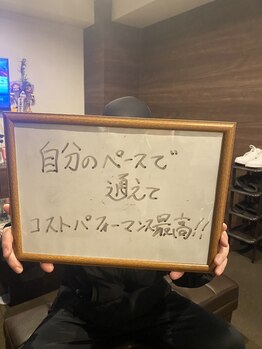 自分のペースで
通えて
コストパフォーマンス最高!!